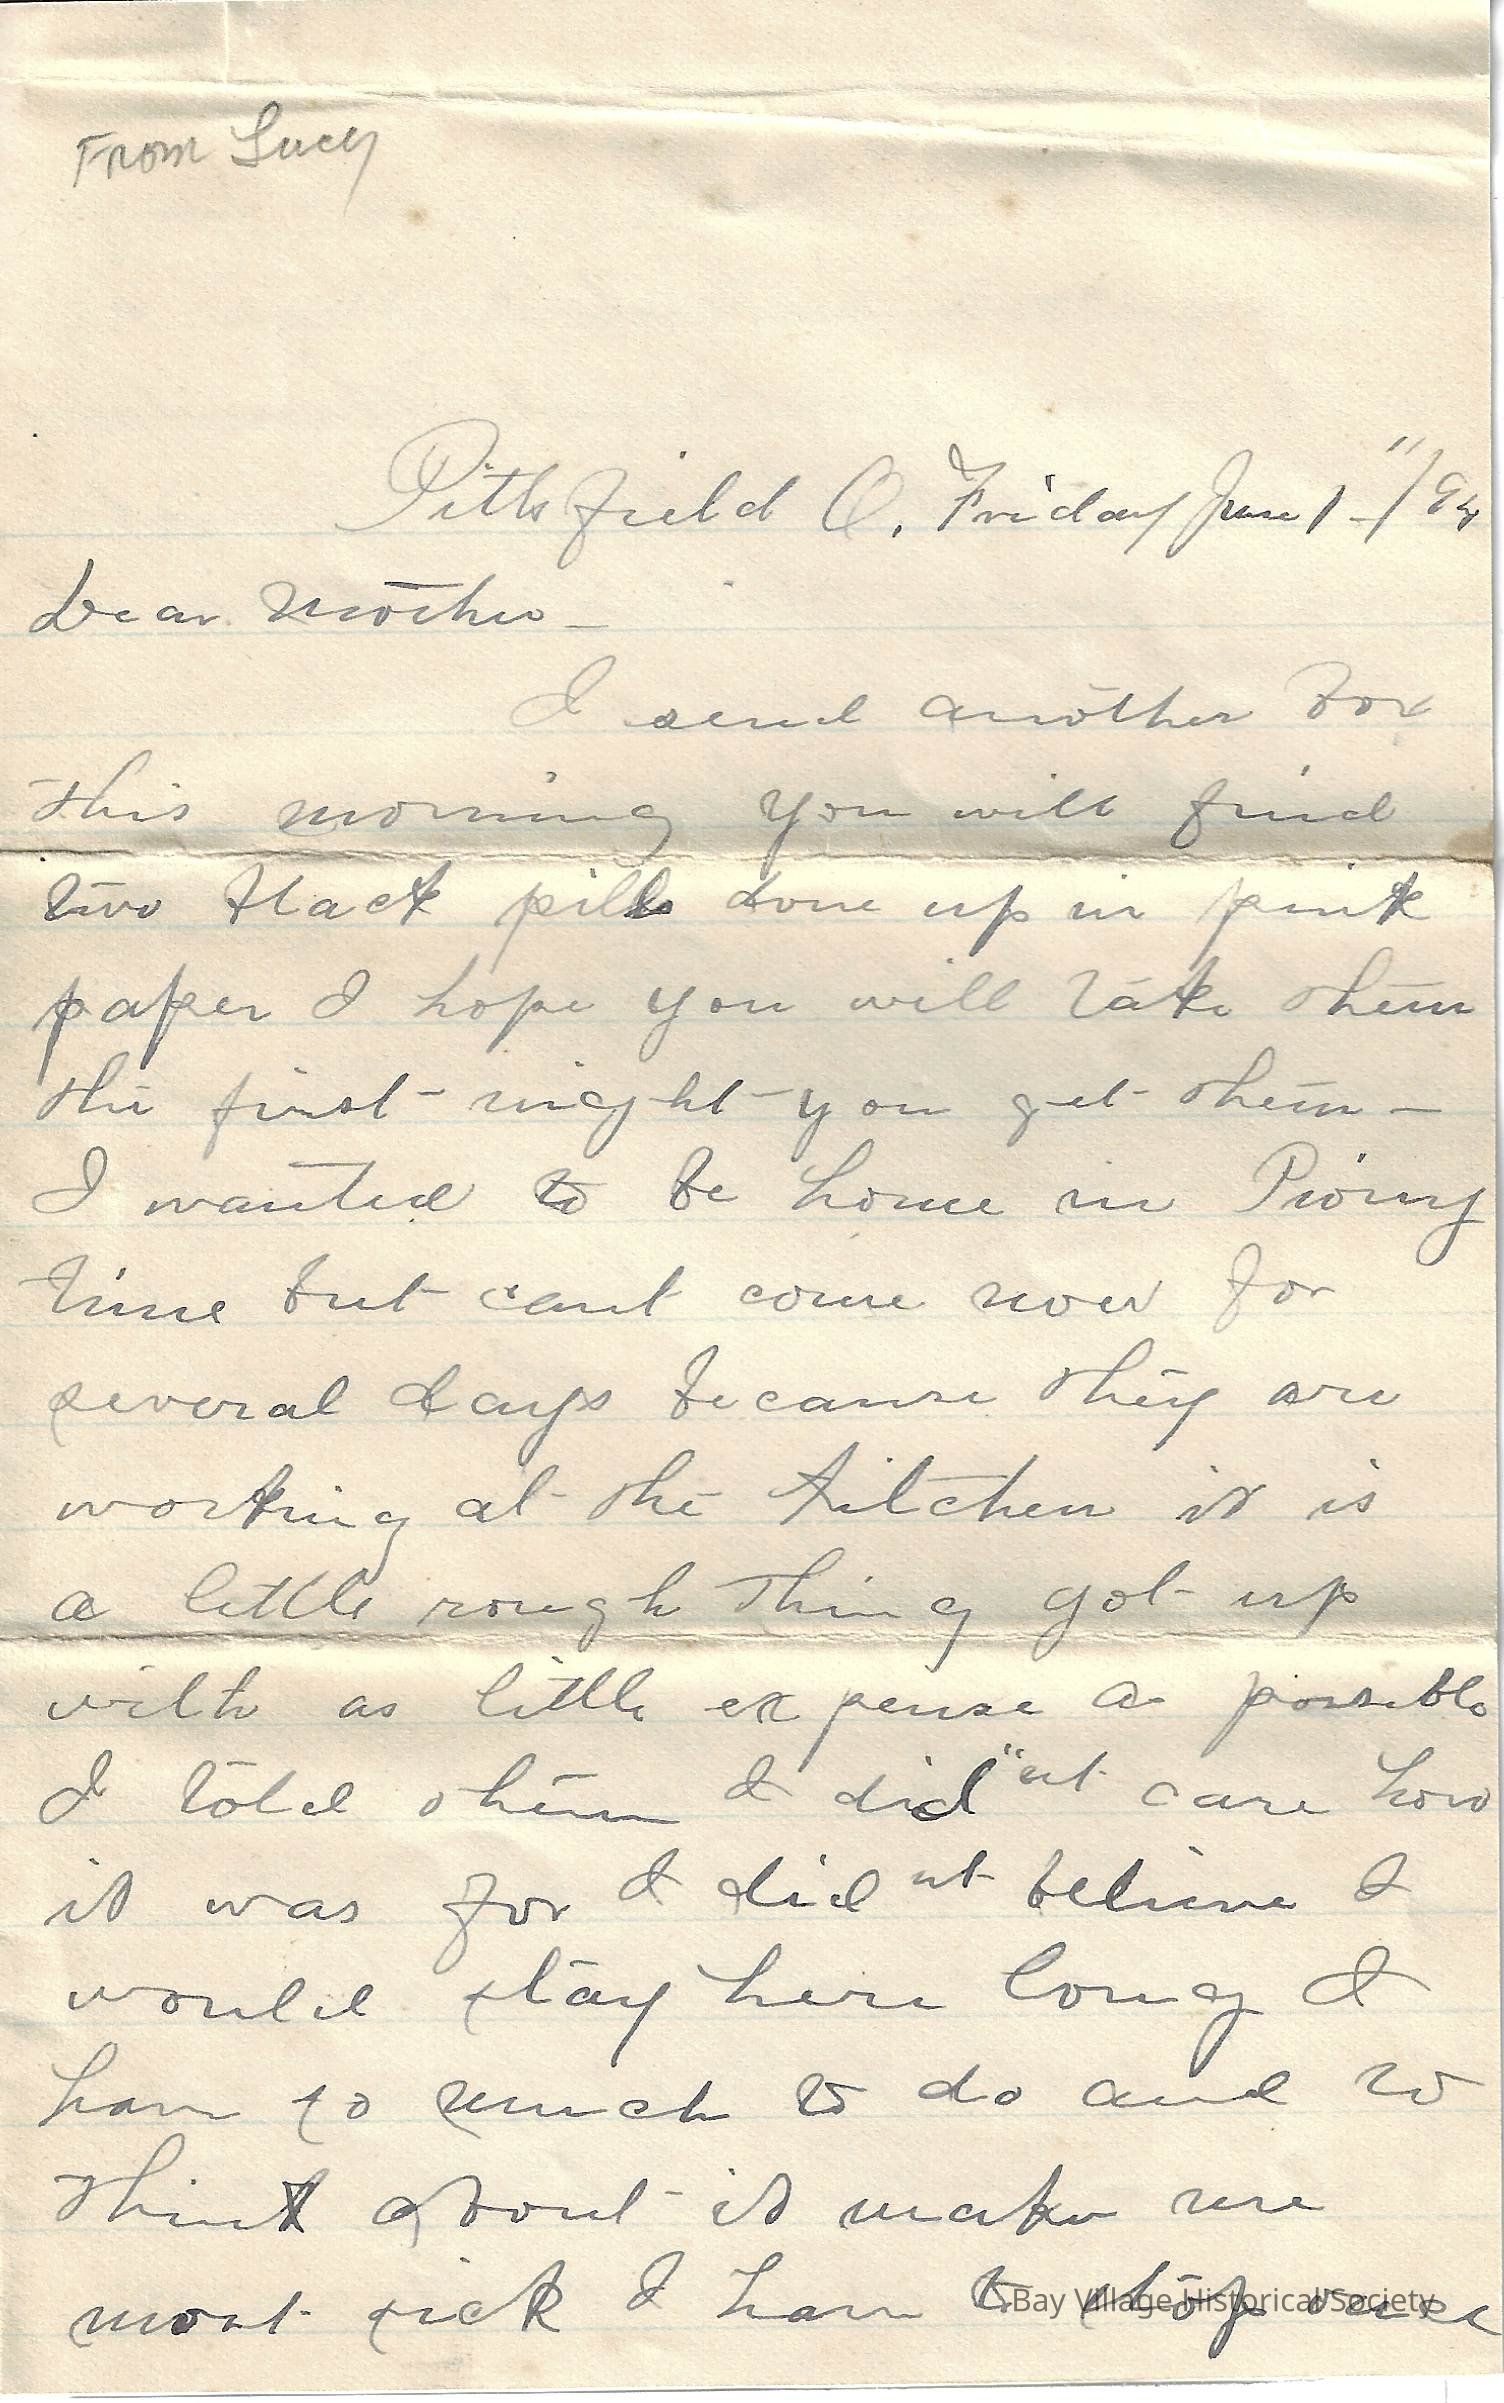 From Lucy
Pittsfield O. Friday June 1 - /94
Dear Mother -
I send another box
this morning you will find
two black pills done up in pink
paper I hope you will take them
the first night you get them -
I wanted to be home in Piony
time but cant come now for
several days because they are
working at the kitchen it is
a little rough thing got up
with as little expense as possible
I told them I did"nt care how
it was for I did nt believe I
would stay here long I
have so much to do and to
think about it make me
most sick I have to stop once
Bay Village Historical Society